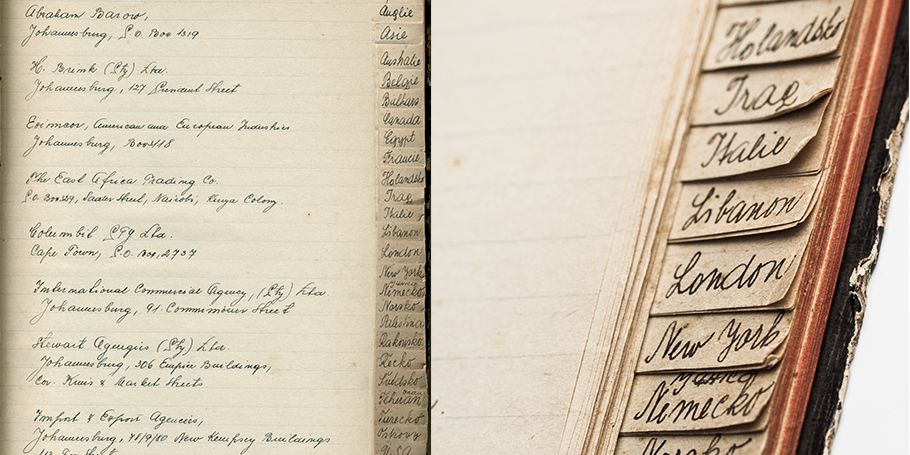 Abraham Barow,
Johannesburg, P.O. Box 1319
H. Brink (Pty) Ltd.
Johannesburg, 127 President Street
American and European Industries
Johannesburg,
The East Africa Trading Co.
P.O. Sadler Street, Nairobi, Kenya Colony.
Columbit PTY Ltd.
Cape Town, P.O. Box, 2737
International Commercial Agency, (Pty) Ltd.
Johannesburg, 91 Commissioner Street
Stewart Agengies (Pty) Ltd.
Johannesburg, 306 Empire Buildings,
Cor. Kruis & Market Streets
Import & Export Agencies,
Johannesburg, 78/9/80 New Kempsey Buildings
Anglie
Asie
Australie
Belgie
Balkars
Canada
Egypt
Francie
Holandsko
Iraq
Italie
Libanon
London
New York
Německo
Norsko
Palestina
Rakousko
Řecko
Švédsko
Teheran
Turecko
Ostrovy
U.S.A.
Holandsko
Iraq
Italie
Libanon
London
New York
Německo
Norsko